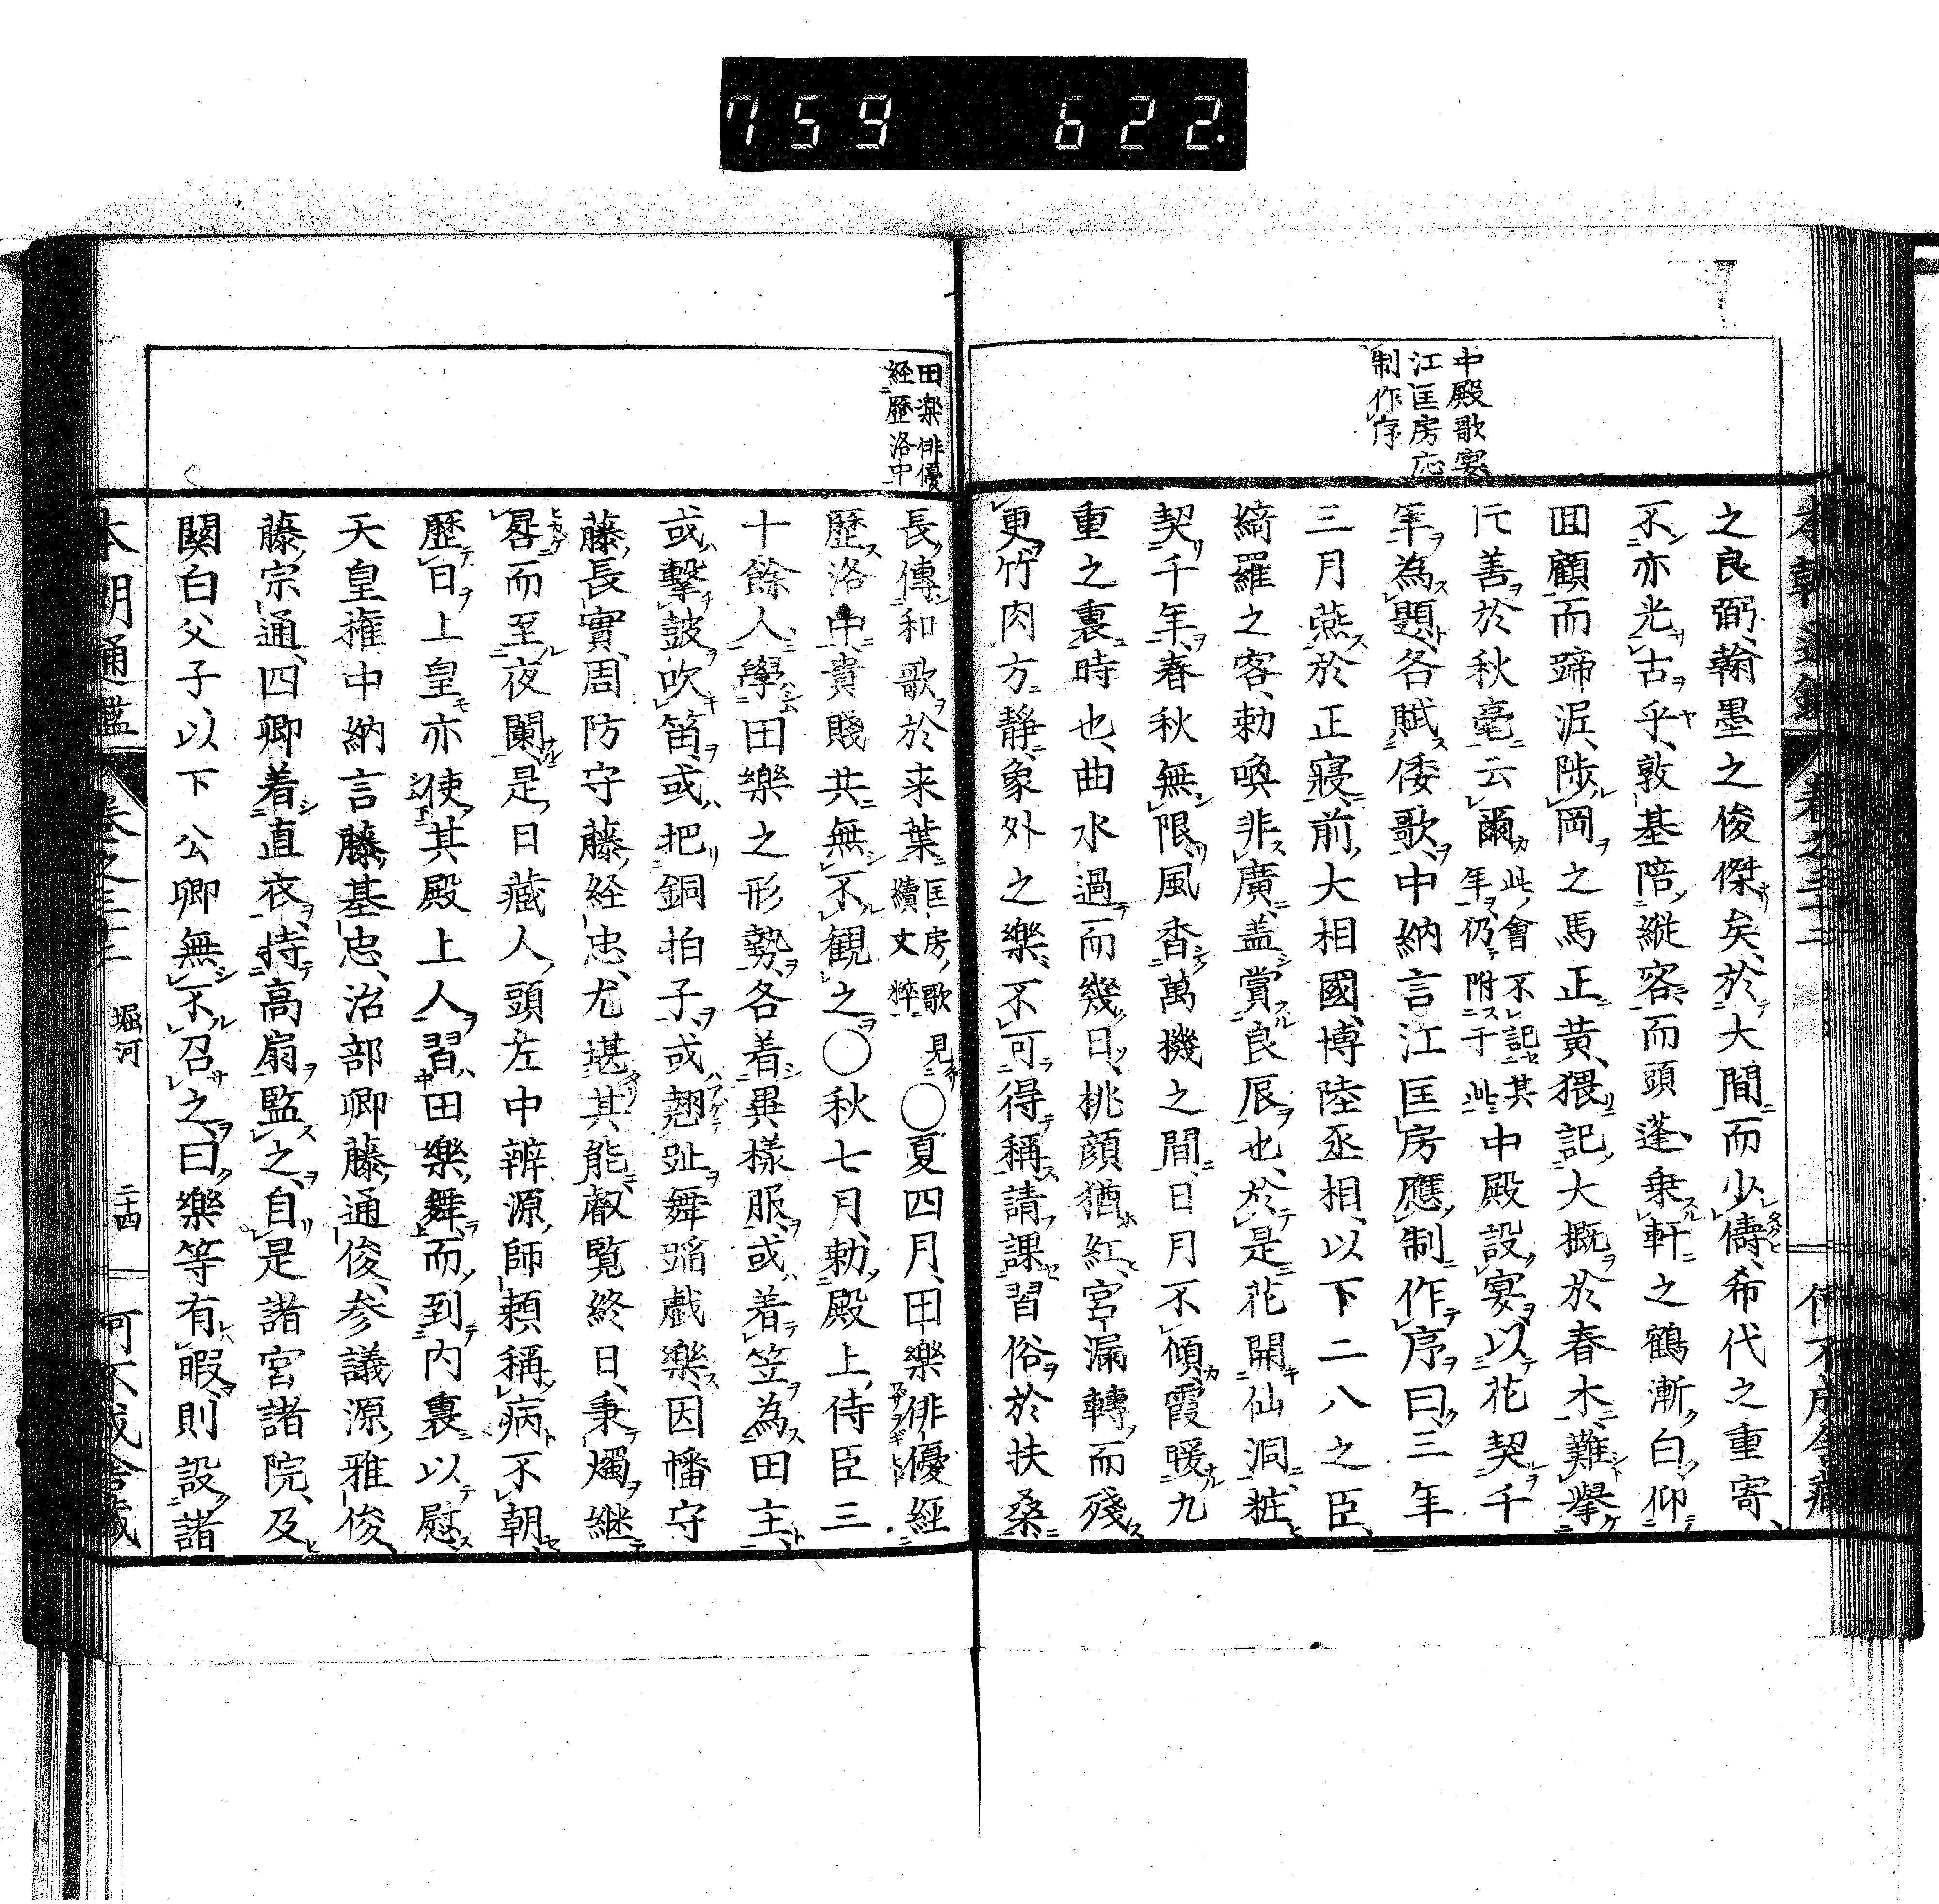 759 622.
中殿歌宴
江匡房応
制作序
之良弼翰墨之俊傑矣於大間而少儔希代之重寄
不亦光古乎敦基陪縱容而頭蓬乗軒之鶴漸白仰
囬顧而蹄泥陟岡之馬正黄猥記大概於春木難擧
善於秋毫云爾此會不記其年仍附于此中殿設宴以花契千
年為題各賦倭歌中納言江匡房應制作序曰三年
三月燕於正寢前大相國博陸丞相以下二八之臣
綺羅之客勅喚非廣盖賞良辰也於是花開仙洞粧
契千年春秋無限風香萬機之間日月不傾霞暖九
重之裏時也曲水過而幾日桃顔猶紅宮漏轉而殘
更竹肉方靜象外之樂不可得稱請課習俗於扶桑
田楽俳優
経歴洛中
長傳和歌於来葉匡房歌見續文粹〇夏四月田樂俳優經
歷洛中貴賤共無不觀之〇秋七月勅殿上侍臣三
十餘人學田樂之形勢各着異樣服或着笠為田主
或擊鼓吹笛或把銅拍子或翹趾舞蹈戯樂因幡守
藤長實周防守藤経忠尤堪其能叡覧終日秉燭継
晷而至夜闌是日藏人頭左中辨源師頼稱病不朝
歷日上皇亦使其殿上人習田樂舞而到内裏以慰
天皇權中納言藤基忠治部卿藤通俊参議源雅俊
藤宗通四卿着直衣持高扇監之自是諸宮諸院及
関白父子以下公卿無不召之曰樂等有暇則設諸
本朝通鑑 卷之三十二 堀河 二十四 何不成舎蔵